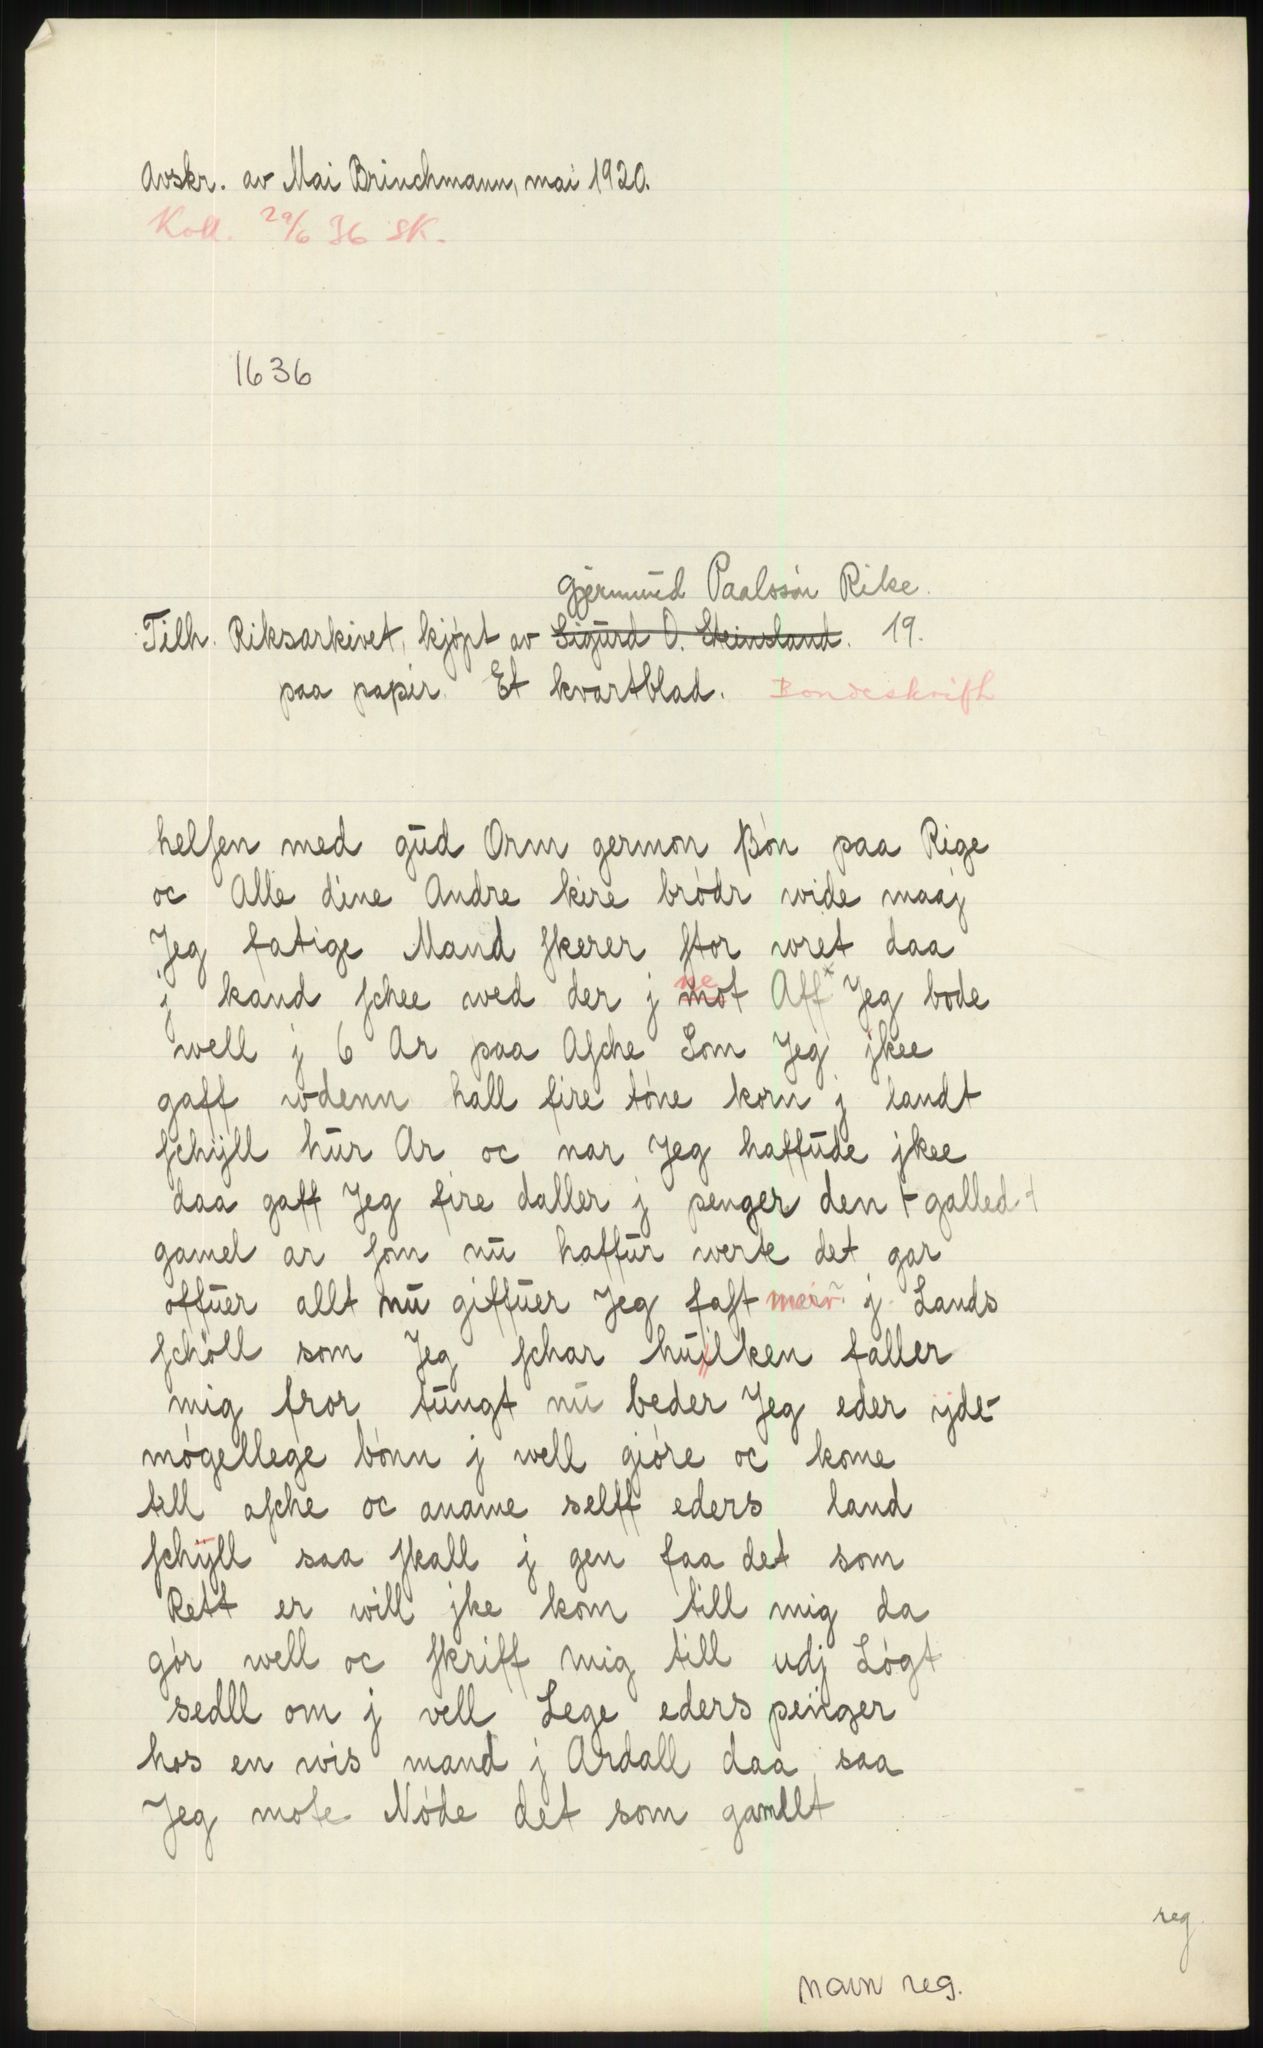 Avskr. av Mai Brinchmann, mai 1920.
Koll. 29/6 36 SK.
1636
Gjermund Paalssøn Rike.
Tilh. Riksarkivet, kjøpt av Sigurd O. Steinsland. 19.
paa papir. Et kvartblad. Bondeskrift
helsen med gud Orm germon ßøn paa Rige
oc Alle dine Andre kire brødr wide maaj
Jeg fatige Mand skerer stor wret daa
j kand schee wed der j mot Aff* Jeg bode
well j 6 Ar paa Asche Som Jeg jkee
gaff wdenn hall fire tóne korn j landt
schyll hur Ar oc nar Jeg haffude jkee
daa gaff Jeg fire daller j penger den + galled +
gamel ar som nu haffur werte det gar
offuer allt nu giffuer Jeg fast meir j Lands
schöll som Jeg schar huilken faller
mig fror tungt nu beder Jeg eder ijde-
mógellege bónn j well gióre oc kome
till asche oc aname selff eders land
schyll saa skall j gen faa det som
Rett er will jke kom till mig da
gór well oc skriff mig till udj Lógt
sedll om j vell Lege eders penger
hos en wis mand j Ardall daa saa
Jeg mote Nóde det som gamllt
reg.
navn reg.